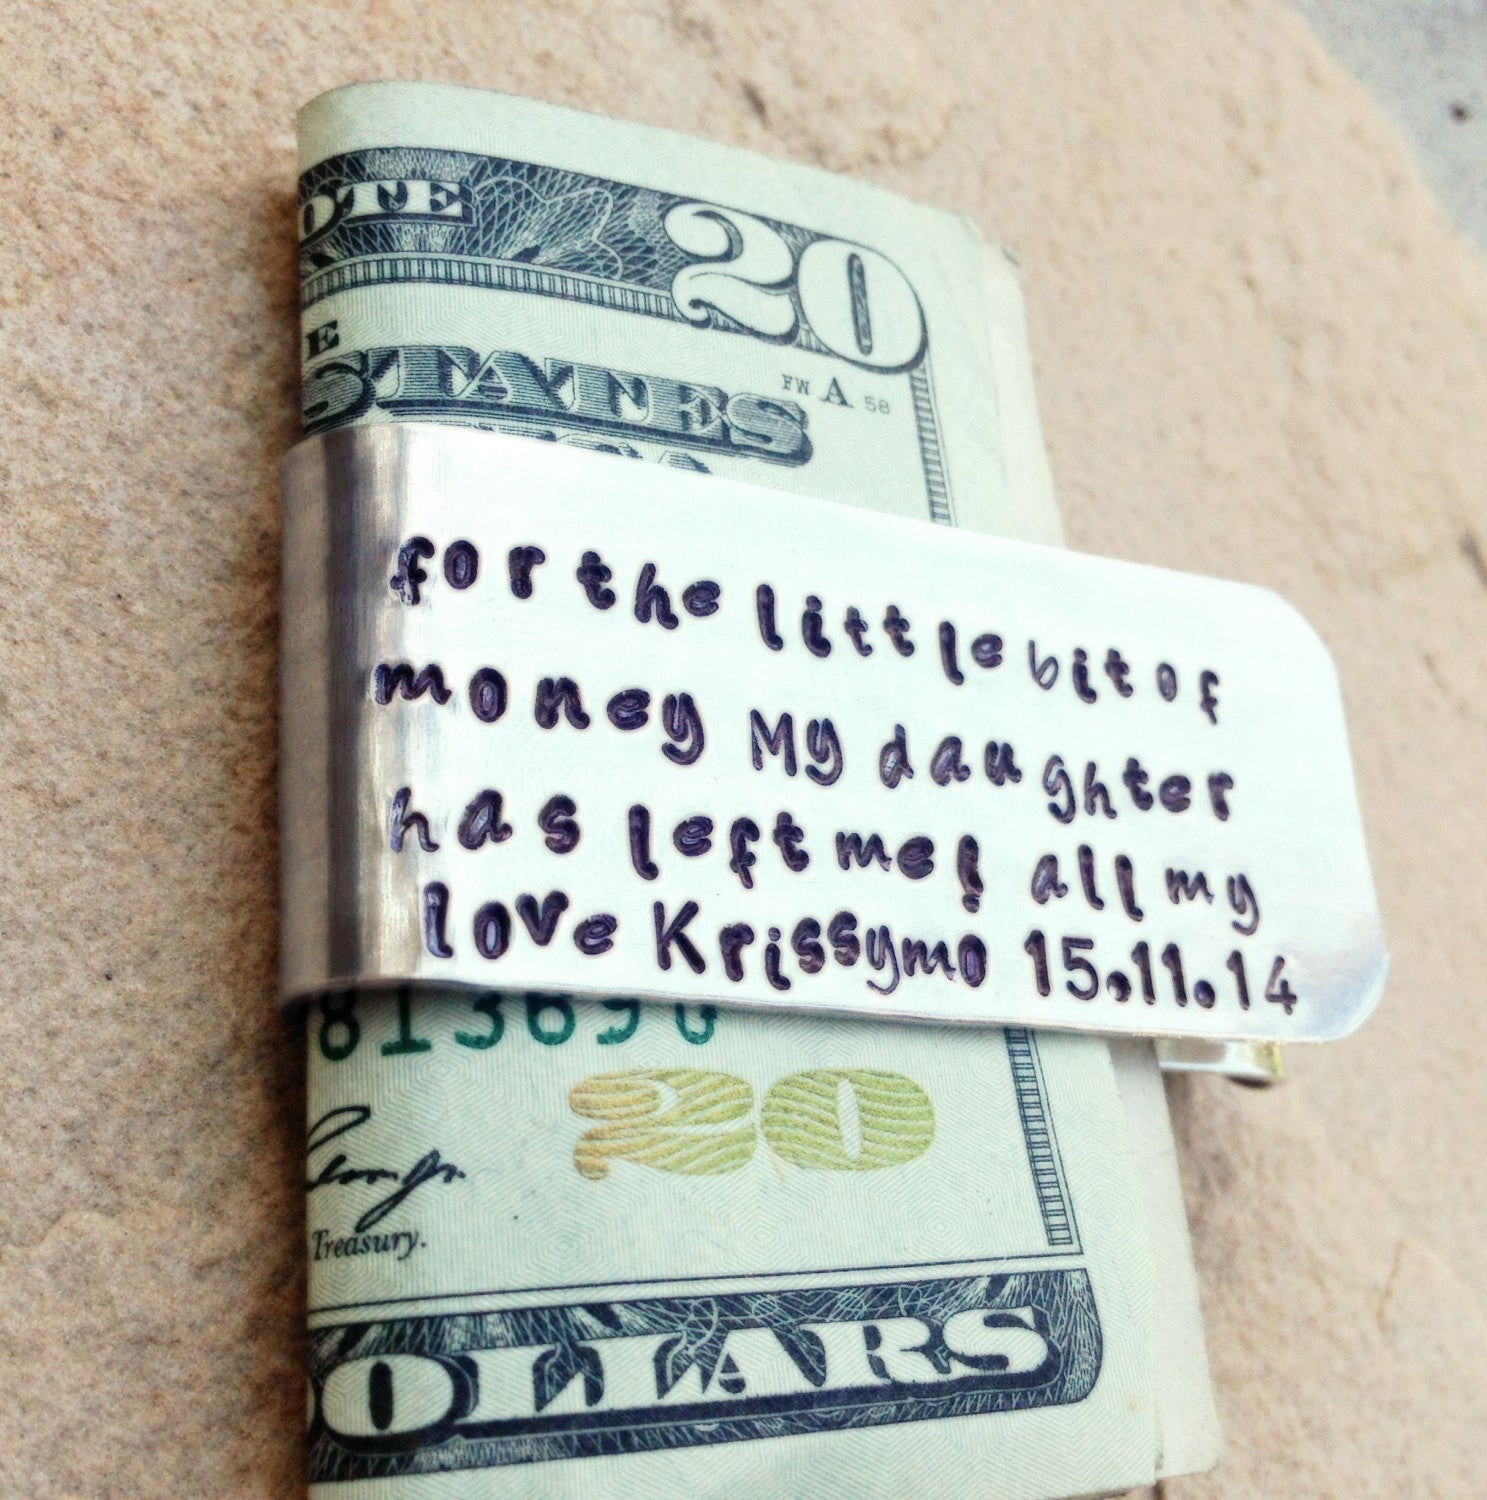 OTE
20
E
STATES
FW A 58
for the little bit of
money My daughter
has left me! all my
love Krissymo 15.11.14
81369G
20
Treasury.
DOLLARS